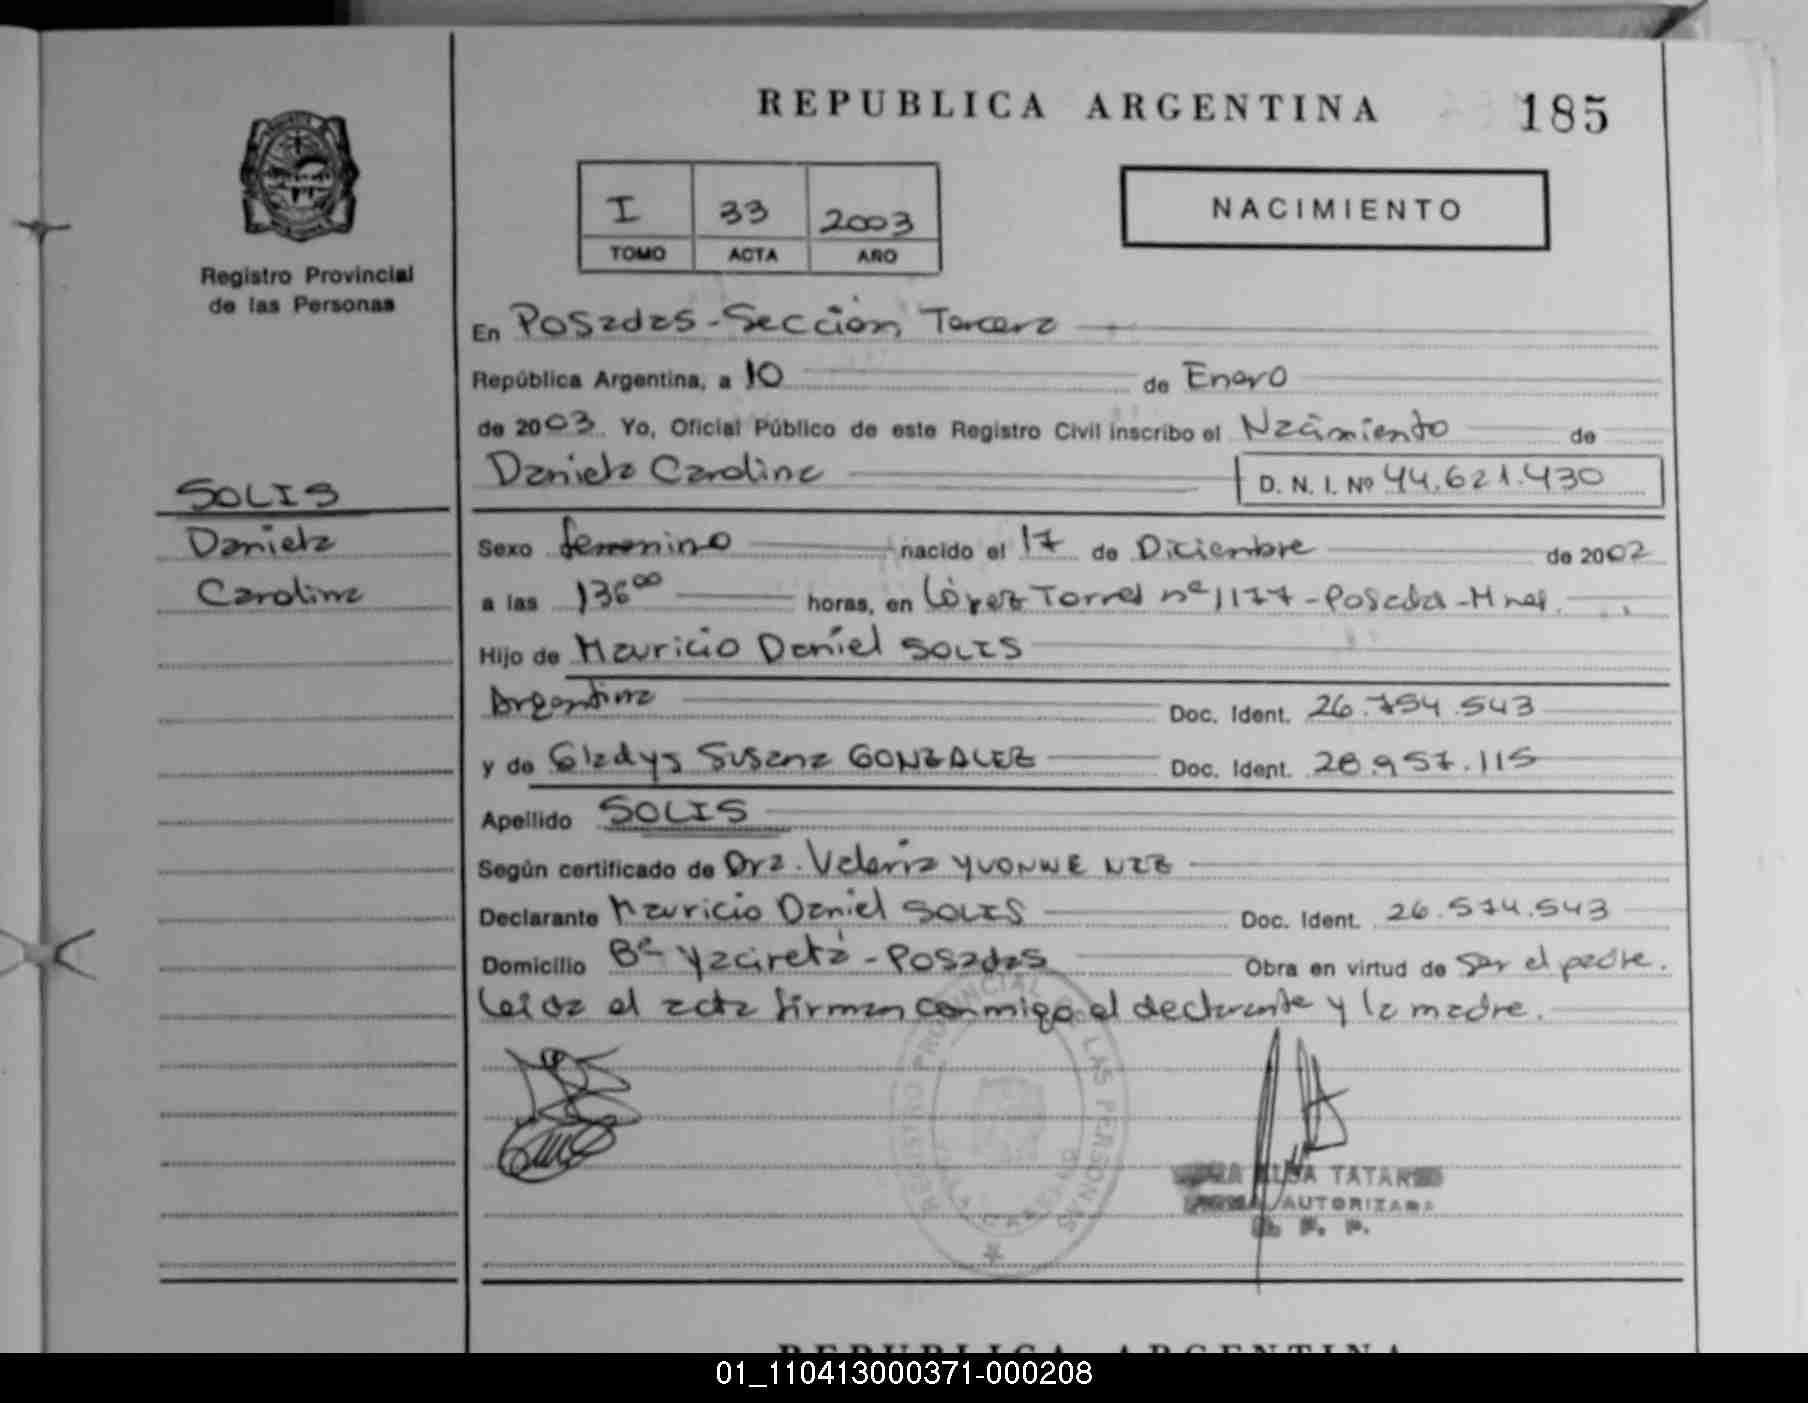 REPUBLICA ARGENTINA
185
I 33 2003
TOMO ACTA AÑO
NACIMIENTO
Registro Provincial
de las Personas
En Posadas - Sección Tercera
República Argentina, a 10 de Enero
de 2003 Yo, Oficial Público de este Registro Civil inscribo el Nacimiento de
Daniela Carolina D. N. I. Nº 44.621.430
SOLIS
Daniela
Carolina
Sexo femenino nacido el 17 de Diciembre de 2002
a las horas, en López Torres nº 1177 - Posadas - Mnes.
Hijo de Mauricio Daniel SOLIS
Argentina Doc. Ident. 26.754.543
y de Gladys Susana GONZALEZ Doc. Ident. 28.957.115
Apellido SOLIS
Según certificado de Dra. Valeria YVONNE
Declarante Mauricio Daniel SOLIS Doc. Ident. 26.574.543
Domicilio Bº Yaciretá - Posadas Obra en virtud de ser el padre.
Leída el acta firman conmigo el declarante y la madre.
REGISTRO PROVINCIAL DE LAS PERSONAS
TATA
AUTORIZADA
REPUBLICA ARGENTINA
01_110413000371-000208